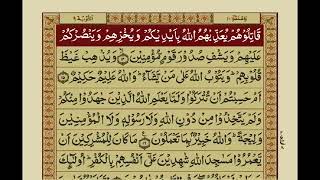 التوبة ٩
قَاتِلُوْهُمْ يُعَذِّبْهُمُ اللّٰهُ بِاَيْدِيْكُمْ وَيُخْزِهِمْ وَيَنْصُرْكُمْ
عَلَيْهِمْ وَيَشْفِ صُدُوْرَ قَوْمٍ مُّؤْمِنِيْنَ ۙ۝١٤ وَيُذْهِبْ غَيْظَ
قُلُوْبِهِمْ ؕ وَيَتُوْبُ اللّٰهُ عَلٰى مَنْ يَّشَآءُ ؕ وَاللّٰهُ عَلِيْمٌ حَكِيْمٌ ۝١٥
اَمْ حَسِبْتُمْ اَنْ تُتْرَكُوْا وَلَمَّا يَعْلَمِ اللّٰهُ الَّذِيْنَ جٰهَدُوْا مِنْكُمْ
وَلَمْ يَتَّخِذُوْا مِنْ دُوْنِ اللّٰهِ وَلَا رَسُوْلِهٖ وَلَا الْمُؤْمِنِيْنَ
وَلِيْجَةً ؕ وَاللّٰهُ خَبِيْرٌۢ بِمَا تَعْمَلُوْنَ ۝١٦ مَا كَانَ لِلْمُشْرِكِيْنَ اَنْ
يَّعْمُرُوْا مَسٰجِدَ اللّٰهِ شٰهِدِيْنَ عَلٰٓى اَنْفُسِهِمْ بِالْكُفْرِ ؕ اُولٰٓئِكَ